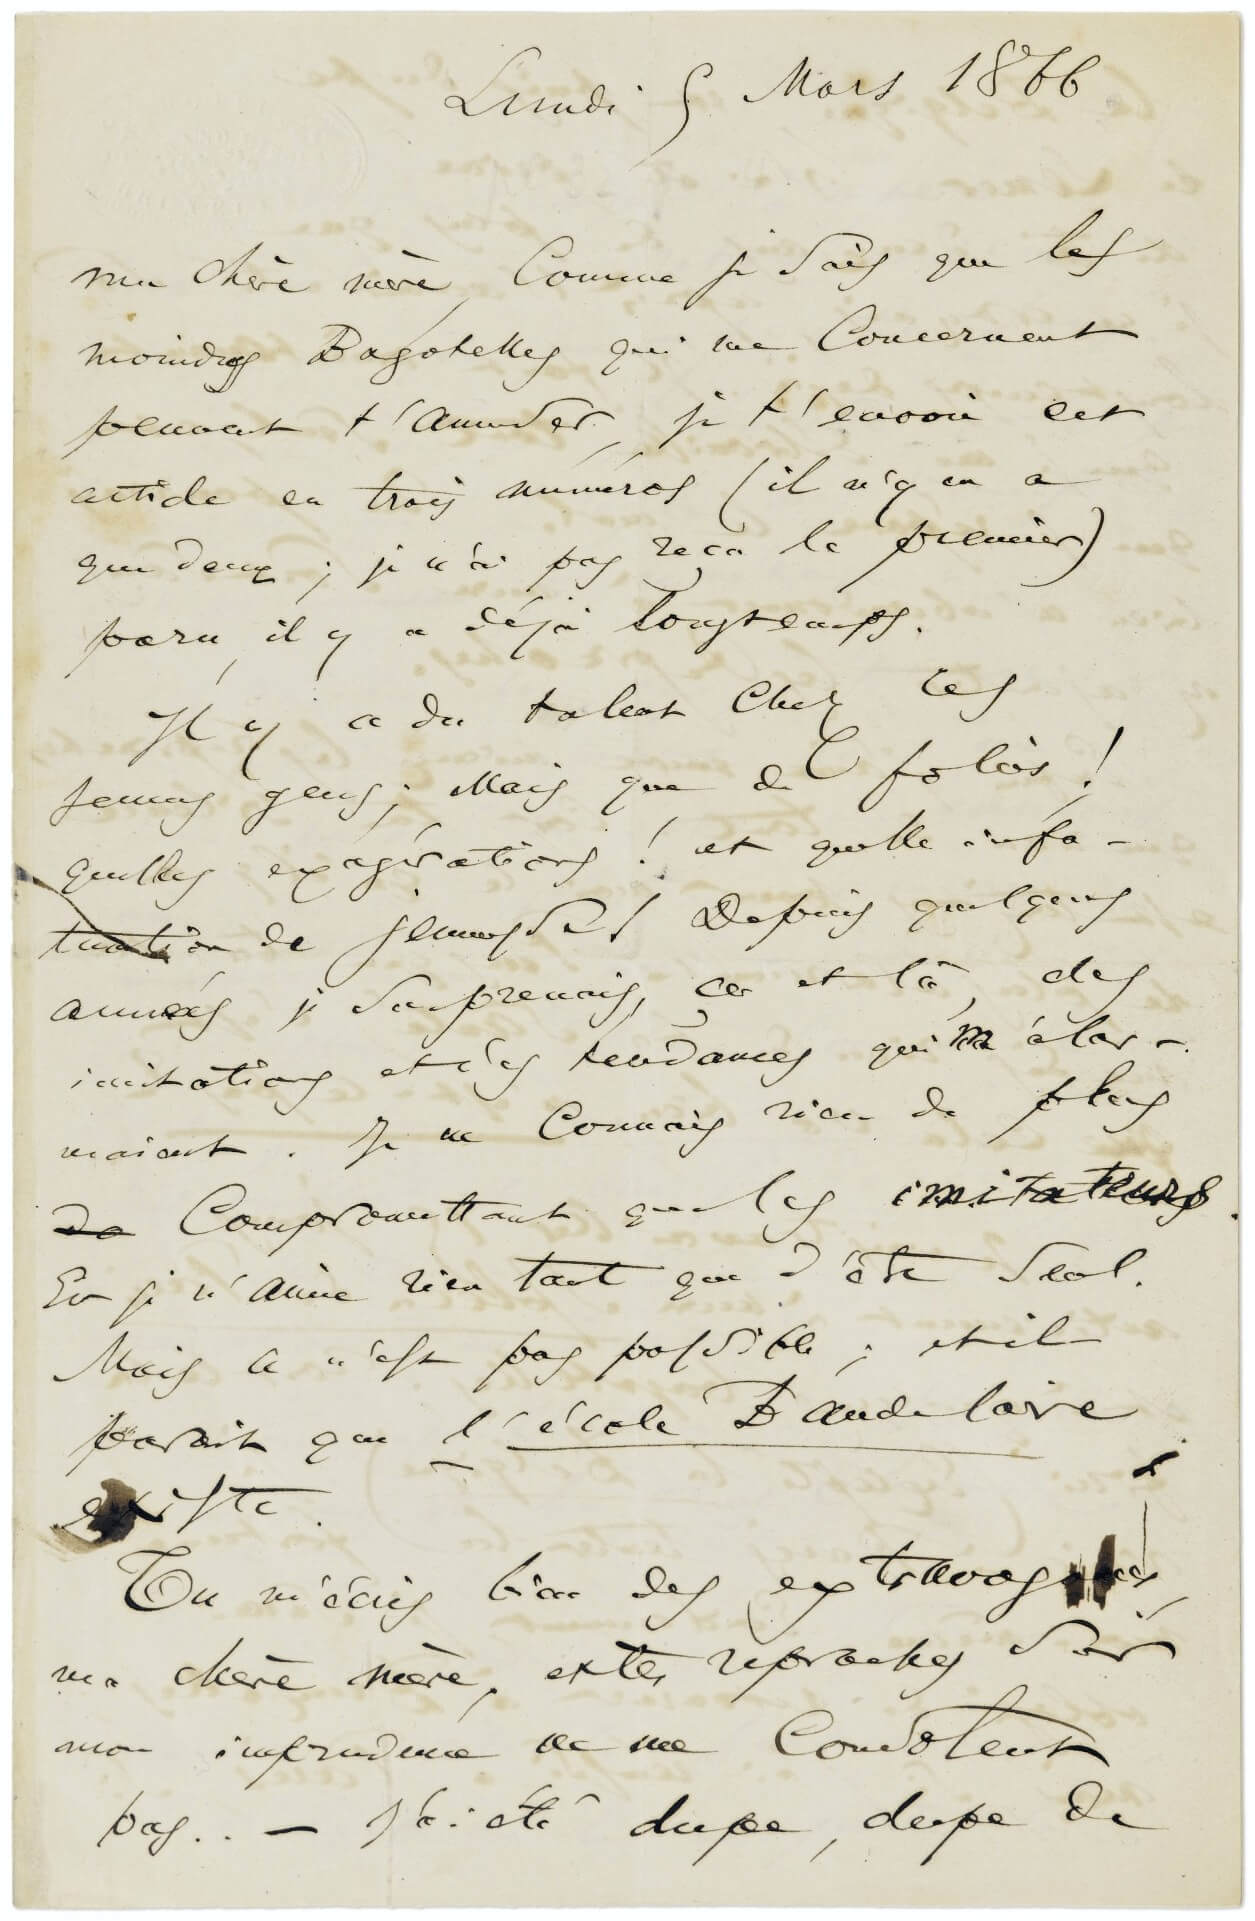 Lundi 5 Mars 1866
ma chère mère, Comme je sais que les
moindres Bagatelles qui me Concernent
peuvent t'amuser, je t'envoie cet
article en trois numéros (il n'y en a
que deux ; je n'ai pas reçu le premier)
paru, il y a déjà longtemps.
Il y a du talent chez ces
jeunes gens ; Mais que de folies !
quelles exagérations ! et quelle infa-
tuation de jeunesse ! Depuis quelques
années je surprenais, çà et là, des
imitations et des tendances qui m'alar-
maient. Je ne Connais rien de plus
de Compromettant que les imitateurs.
Et je n'aime rien tant que d'être seul.
Mais ce n'est pas possible ; et il
paraît que l'école Baudelaire
existe.
Tu m'écris bien des extravagances,
ma chère mère, et tes reproches sur
mon imprudence ne me Consolent
pas.. — J'ai été dupe, dupe de